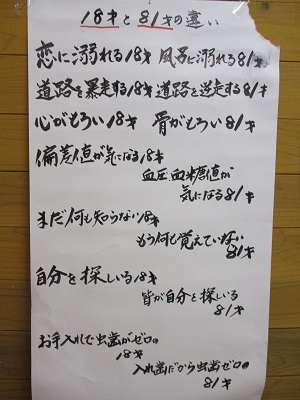 18才と81才の違い
恋に溺れる18才 風呂に溺れる81才
道路を暴走する18才 道路を逆走する81才
心がもろい18才 骨がもろい81才
偏差値が気になる18才
血圧血糖値が
気になる81才
まだ何も知らない18才
もう何も覚えていない
81才
自分を探しいる18才
皆が自分を探しいる
81才
お手入れで虫歯がゼロの
18才
入れ歯だから虫歯ゼロの
81才